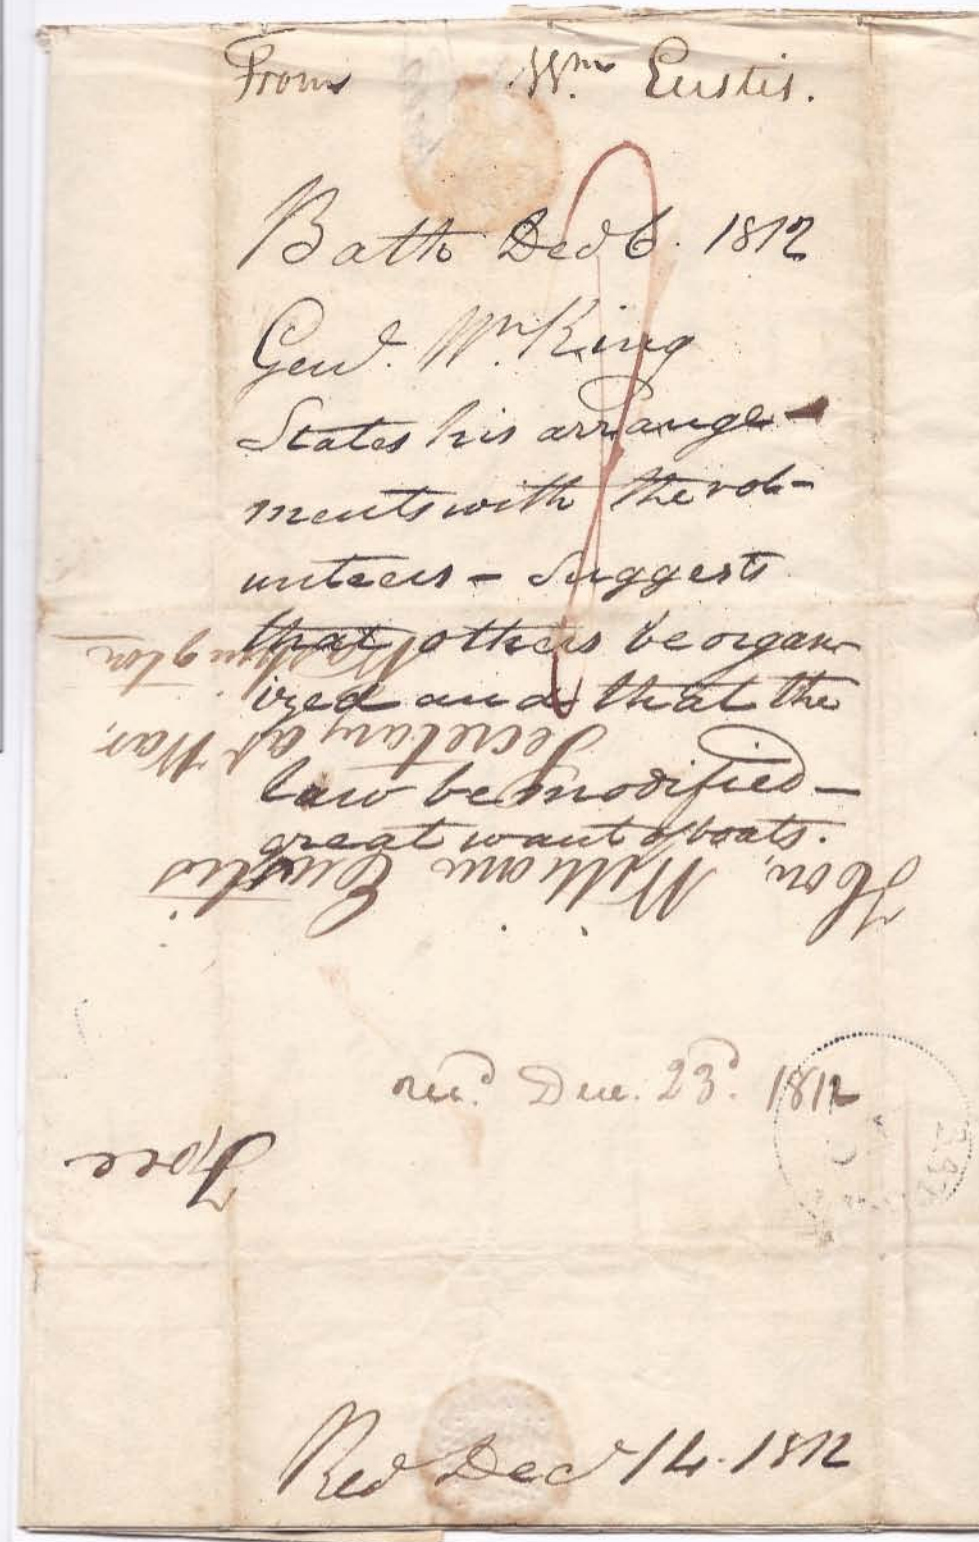 From Wm Eustis.
Bath Decr 6. 1812
Genl. Wm King
States his arrange-
ments with the vol-
unteers - Suggests
that others be organ-
ized and that the
law be modified -
great want of boats.
Hon, William Eustis
Secretary at War,
Washington
recd. Dec. 23d. 1812
Free
Recd Decr 14. 1812